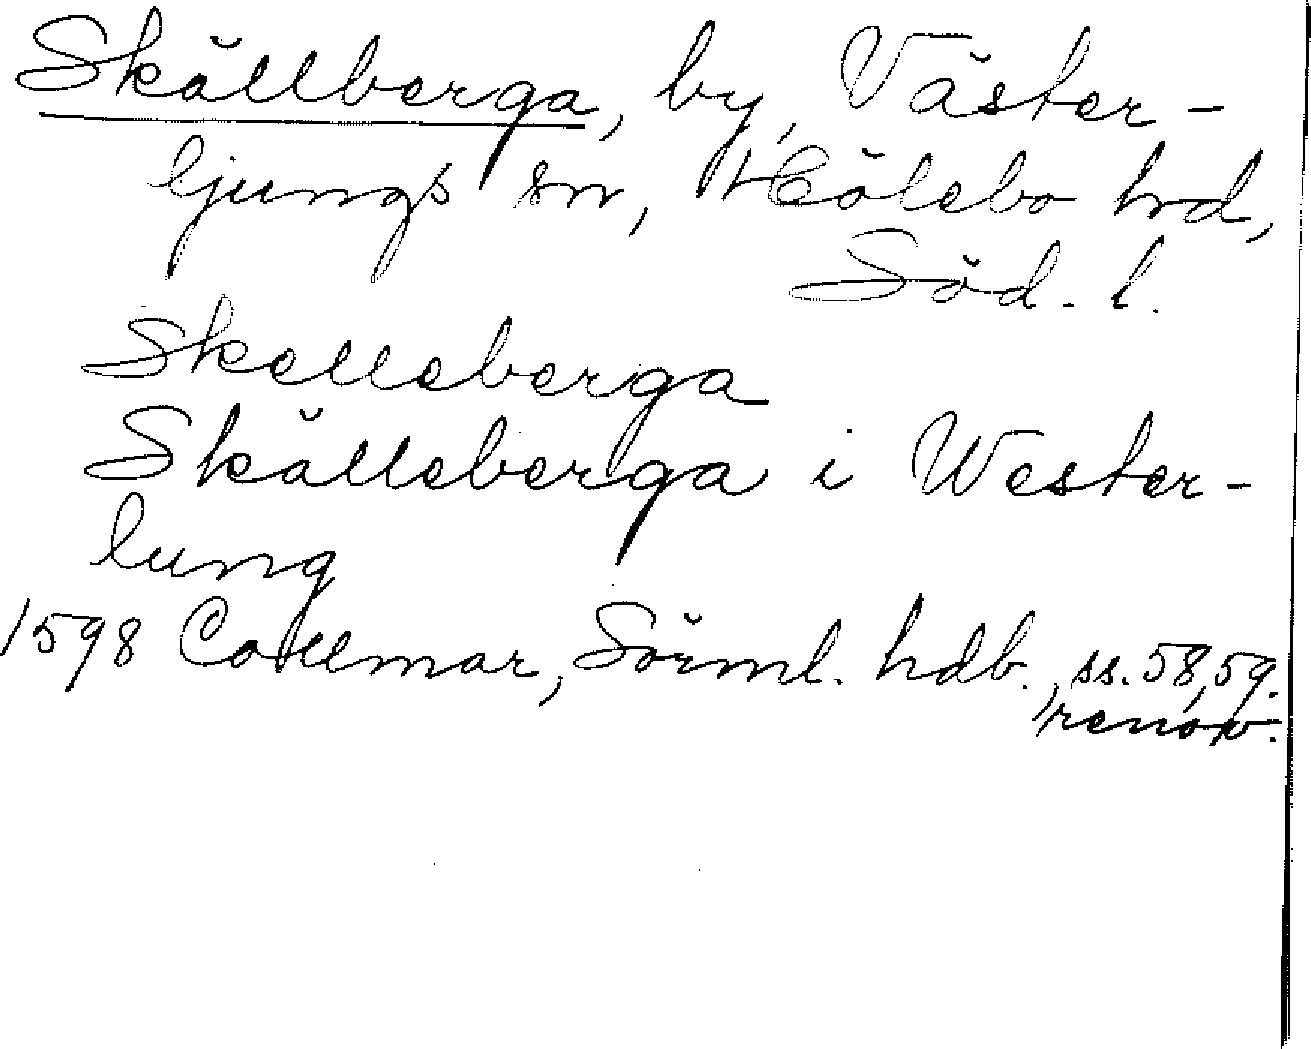 Skällberga, by, Väster-
ljungs sn, Hölebo hrd,
Söd. l.
Skelleberga
Skälleberga i Wester-
lung
1598 Collmar, Sörml. hdb., ss. 58, 59.
renov.